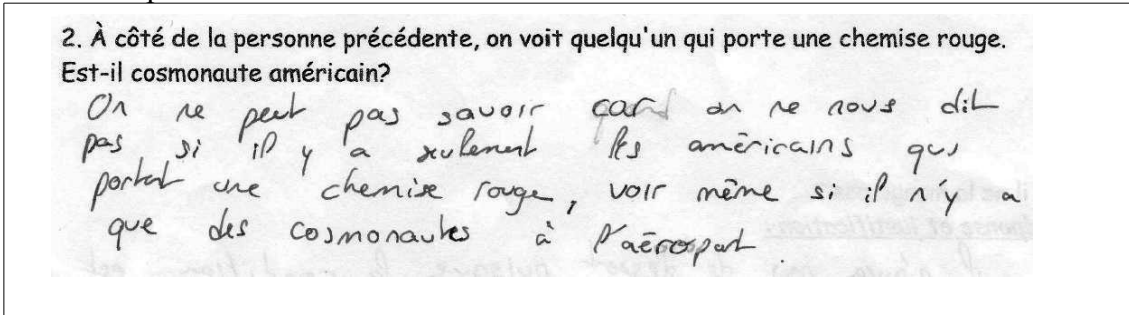 2. À côté de la personne précédente, on voit quelqu'un qui porte une chemise rouge.
Est-il cosmonaute américain?
On ne peut pas savoir car on ne nous dit
pas si il y a seulement les américains qui
portent une chemise rouge, voir même si il n'y a
que des cosmonautes à l'aéroport.